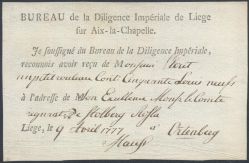 BUREAU de la Diligence Impériale de Liege
sur Aix-la-Chapelle.
Je soussigné du Bureau de la Diligence Impériale,
reconnois avoir reçu de Monsieur
Cent Cinquante Louis neufs
à l'adresse de Son Excellence Mons. le Comte
regnant de Stolberg
Liege, le 9 Avril 1777 à Ortenberg